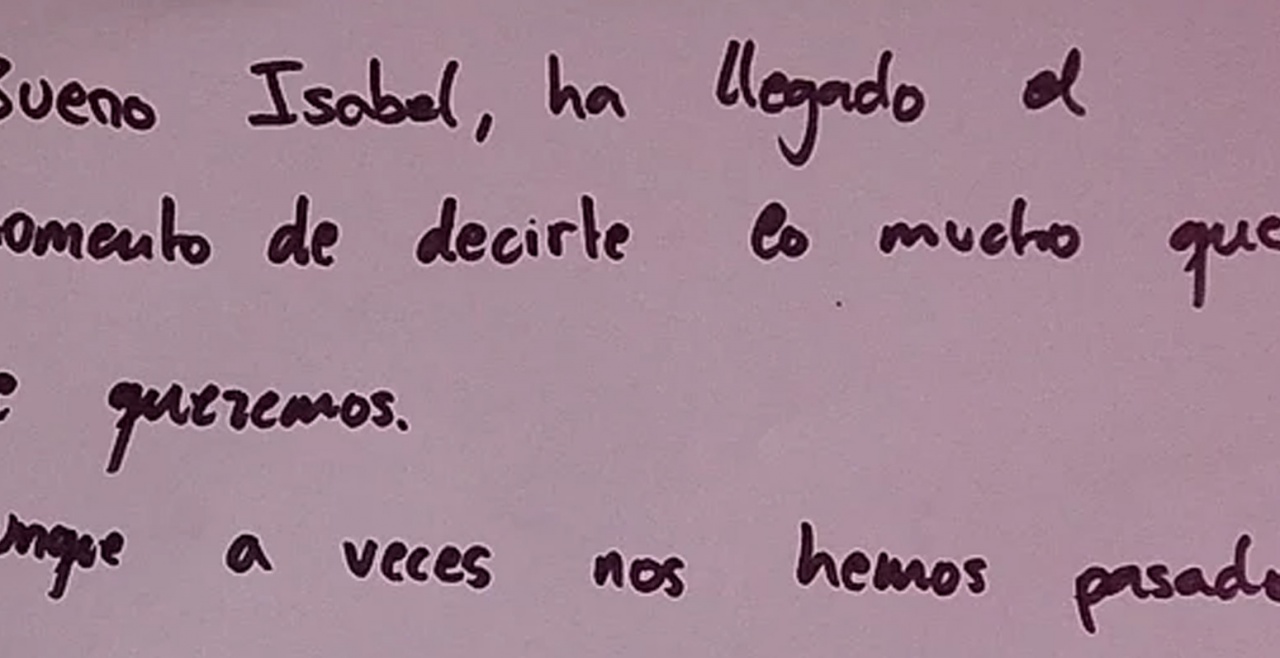 Bueno Isabel, ha llegado el
omento de decirte lo mucho que
e queremos.
unque a veces nos hemos pasado